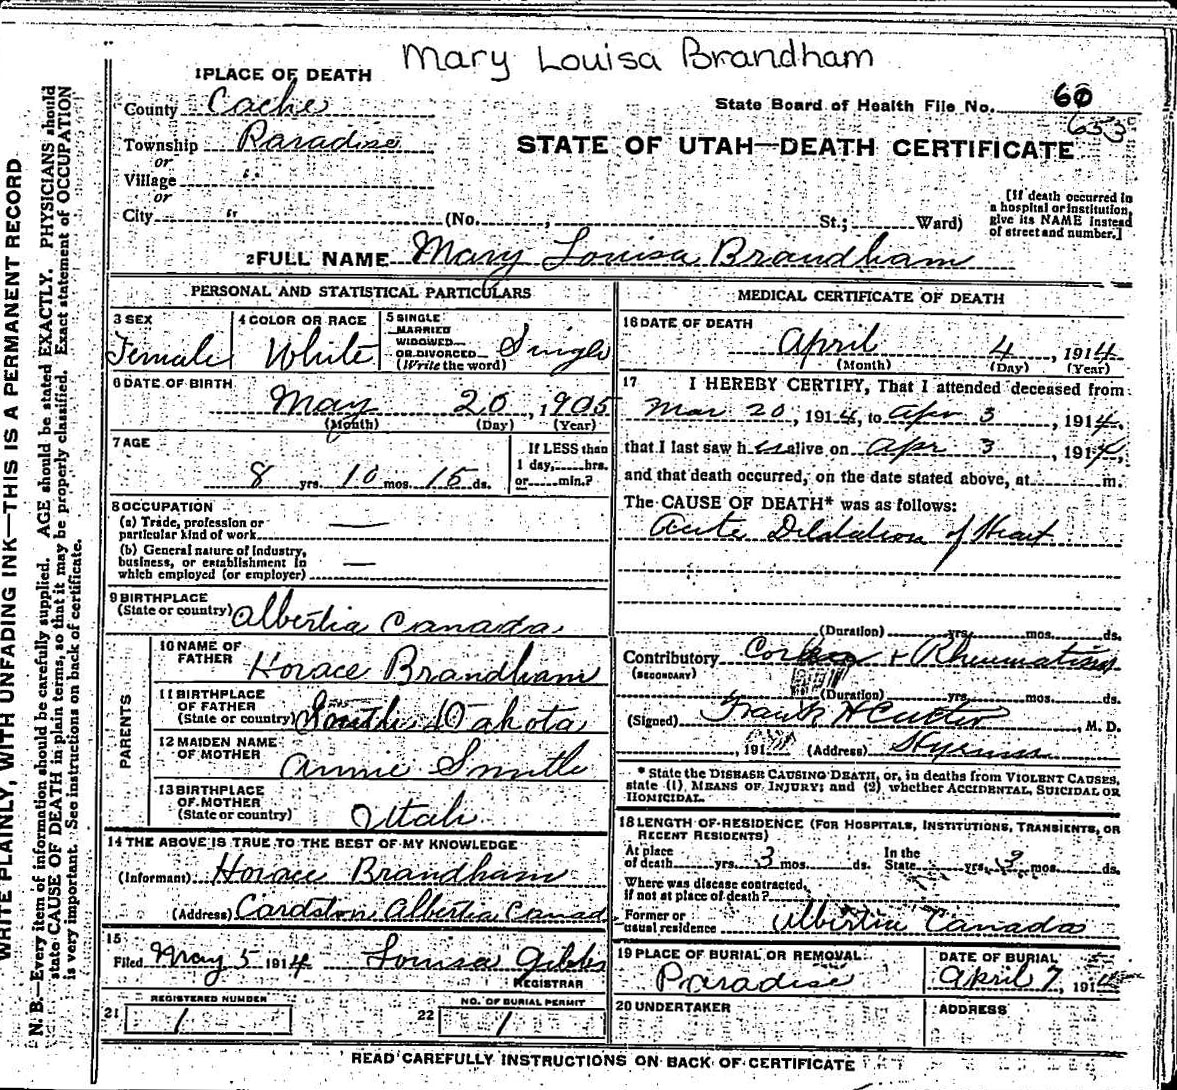 Mary Louisa Brandham
1 PLACE OF DEATH
County Cache
State Board of Health File No. 60
653
Township Paradise
or
Village "
or
City " (No. , St.; Ward)
STATE OF UTAH—DEATH CERTIFICATE
[If death occurred in
a hospital or institution,
give its NAME instead
of street and number.]
2 FULL NAME Mary Louisa Brandham
PERSONAL AND STATISTICAL PARTICULARS
3 SEX
Female
4 COLOR OR RACE
White
5 SINGLE
MARRIED
WIDOWED
OR DIVORCED
(Write the word)
Single
6 DATE OF BIRTH
May 20, 1905
(Month) (Day) (Year)
7 AGE
8 yrs. 10 mos. 15 ds.
If LESS than
1 day, hrs.
or min.?
8 OCCUPATION
(a) Trade, profession or
particular kind of work —
(b) General nature of Industry,
business, or establishment in
which employed (or employer) —
9 BIRTHPLACE
(State or country) Albertia Canada
PARENTS
10 NAME OF
FATHER Horace Brandham
11 BIRTHPLACE
OF FATHER
(State or country) South Dakota
12 MAIDEN NAME
OF MOTHER Annie Smith
13 BIRTHPLACE
OF MOTHER
(State or country) Utah
14 THE ABOVE IS TRUE TO THE BEST OF MY KNOWLEDGE
(Informant) Horace Brandham
(Address) Cardston Albertia Canad
15
Filed May 5 1914 Louisa Gibbs
REGISTRAR
21 REGISTERED NUMBER
1
22 NO. OF BURIAL PERMIT
1
MEDICAL CERTIFICATE OF DEATH
16 DATE OF DEATH
April 4, 1914
(Month) (Day) (Year)
17 I HEREBY CERTIFY, That I attended deceased from
Mar 20, 1914, to Apr 3, 1914,
that I last saw her alive on Apr 3, 1914,
and that death occurred, on the date stated above, at m.
The CAUSE OF DEATH* was as follows:
Acute Dildalion of Heart
(Duration) yrs. mos. ds.
Contributory + Rheumatism
(SECONDARY)
(Duration) yrs. mos. ds.
(Signed) Frank H , M. D.
, 191 (Address) Hyrum
* State the DISEASE CAUSING DEATH, or, in deaths from VIOLENT CAUSES,
state (1) MEANS OF INJURY; and (2) whether ACCIDENTAL, SUICIDAL OR
HOMICIDAL.
18 LENGTH OF RESIDENCE (FOR HOSPITALS, INSTITUTIONS, TRANSIENTS, OR
RECENT RESIDENTS)
At place
of death yrs. 3 mos. ds.
In the
State yrs. 3 mos. ds.
Where was disease contracted,
if not at place of death?
Former or
usual residence Albertia Canada
19 PLACE OF BURIAL OR REMOVAL
Paradise
DATE OF BURIAL
April 7, 1914
20 UNDERTAKER
ADDRESS
READ CAREFULLY INSTRUCTIONS ON BACK OF CERTIFICATE
WRITE PLAINLY, WITH UNFADING INK—THIS IS A PERMANENT RECORD
N. B.—Every item of information should be carefully supplied. AGE should be stated EXACTLY. PHYSICIANS should
state CAUSE OF DEATH in plain terms, so that it may be properly classified. Exact statement of OCCUPATION
is very important. See instructions on back of certificate.